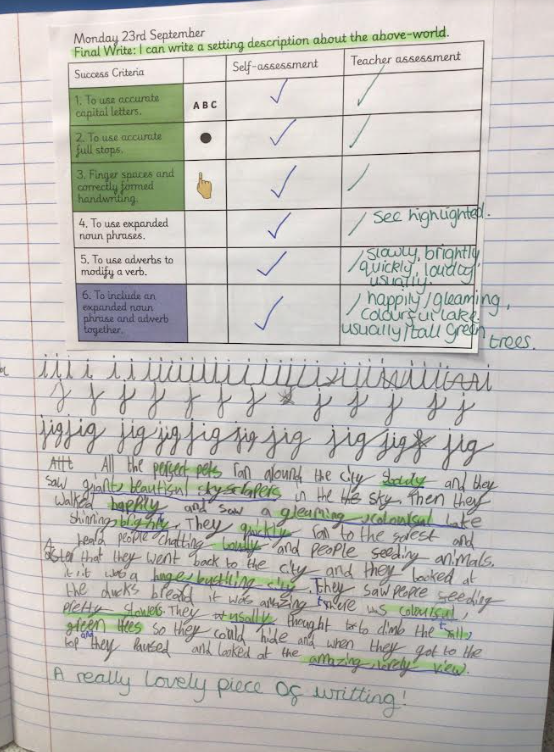 Monday 23rd September
Final Write: I can write a setting description about the above-world.
Success Criteria Self-assessment Teacher assessment
1. To use accurate capital letters. A B C
2. To use accurate full stops.
3. Finger spaces and correctly formed handwriting.
4. To use expanded noun phrases. See highlighted.
5. To use adverbs to modify a verb. slowly, brightly, quickly, loudly, usually.
6. To include an expanded noun phrase and adverb together. happily/gleaming, colourful lake. usually/tall green trees.
jig jig jig jig jig jig jig jig jig jig
All the pets ran around the city and they
saw giant, beautiful skyscrapers in the sky. Then they
walked happily and saw a gleaming, colourful lake
shinning brightly. They quickly ran to the forest and
heard people chatting loudly and people feeding animals.
After that they went back to the city and they looked at
it it was a huge, bustling city. They saw people feeding
the ducks bread it was amazing there was colourful,
pretty flowers. They usually thought to climb the tall,
green trees so they could hide and when they got to the
top they paused and looked at the amazing, lovely view.
A really lovely piece of writting!